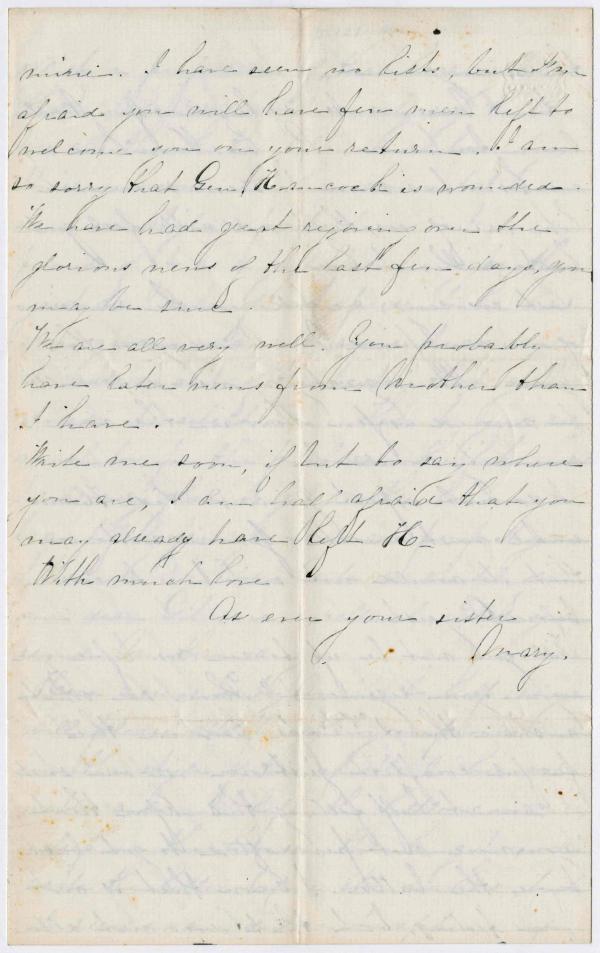 mirie. I have seen no lists, but I'm
afraid you will have few men left to
welcome you on your return. I am
so sorry that Gen. Hancock is wounded.
We have had great rejoicing over the
glorious news of the last few days, you
may be sure.
We are all very well. You probably
have later news from Mother than
I have.
Write me soon, if but to say where
you are, I am half afraid that you
may already have left H—
With much love
As ever your sister
Mary.